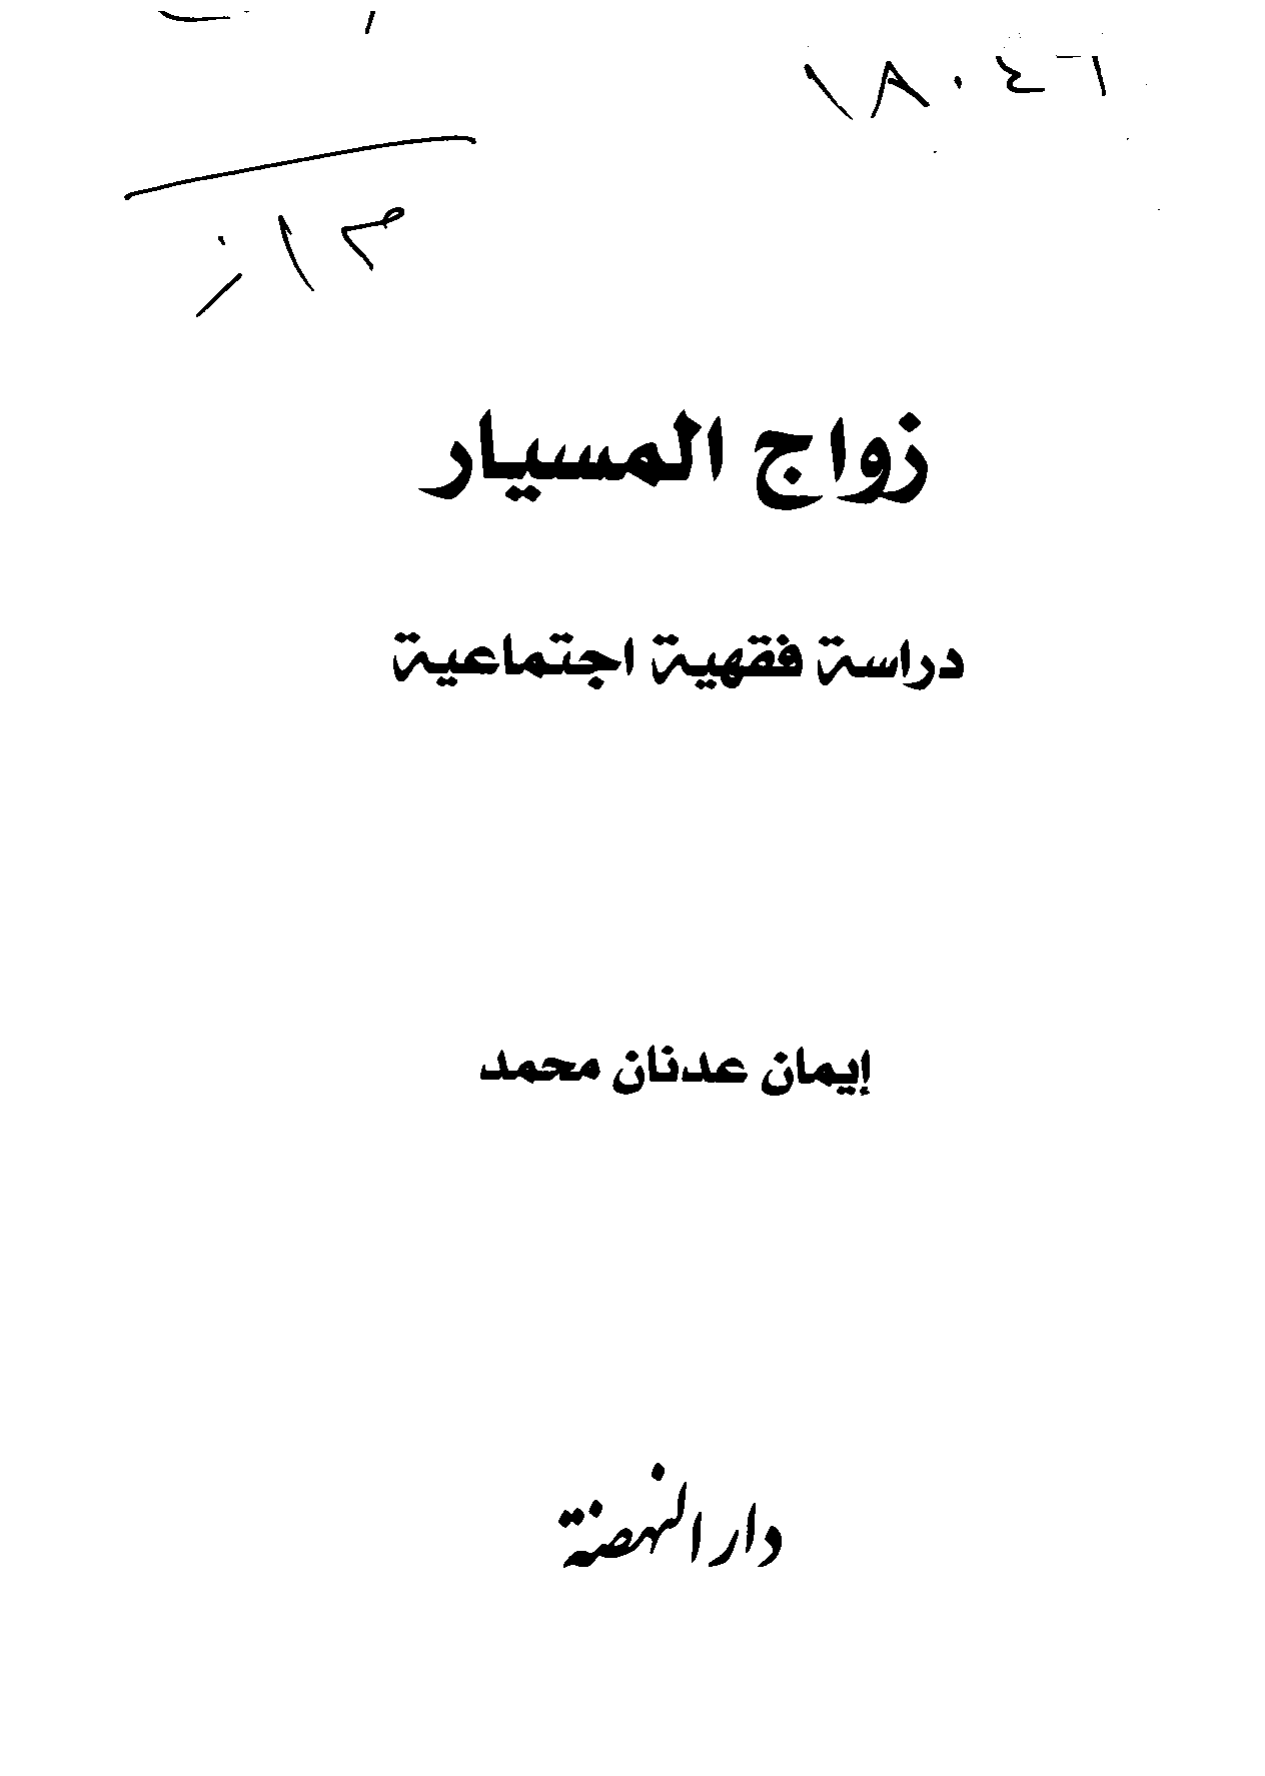 ١٨٠٤٦
زواج المسيار
دراسة فقهية اجتماعية
إيمان عدنان محمد
دار النهضة